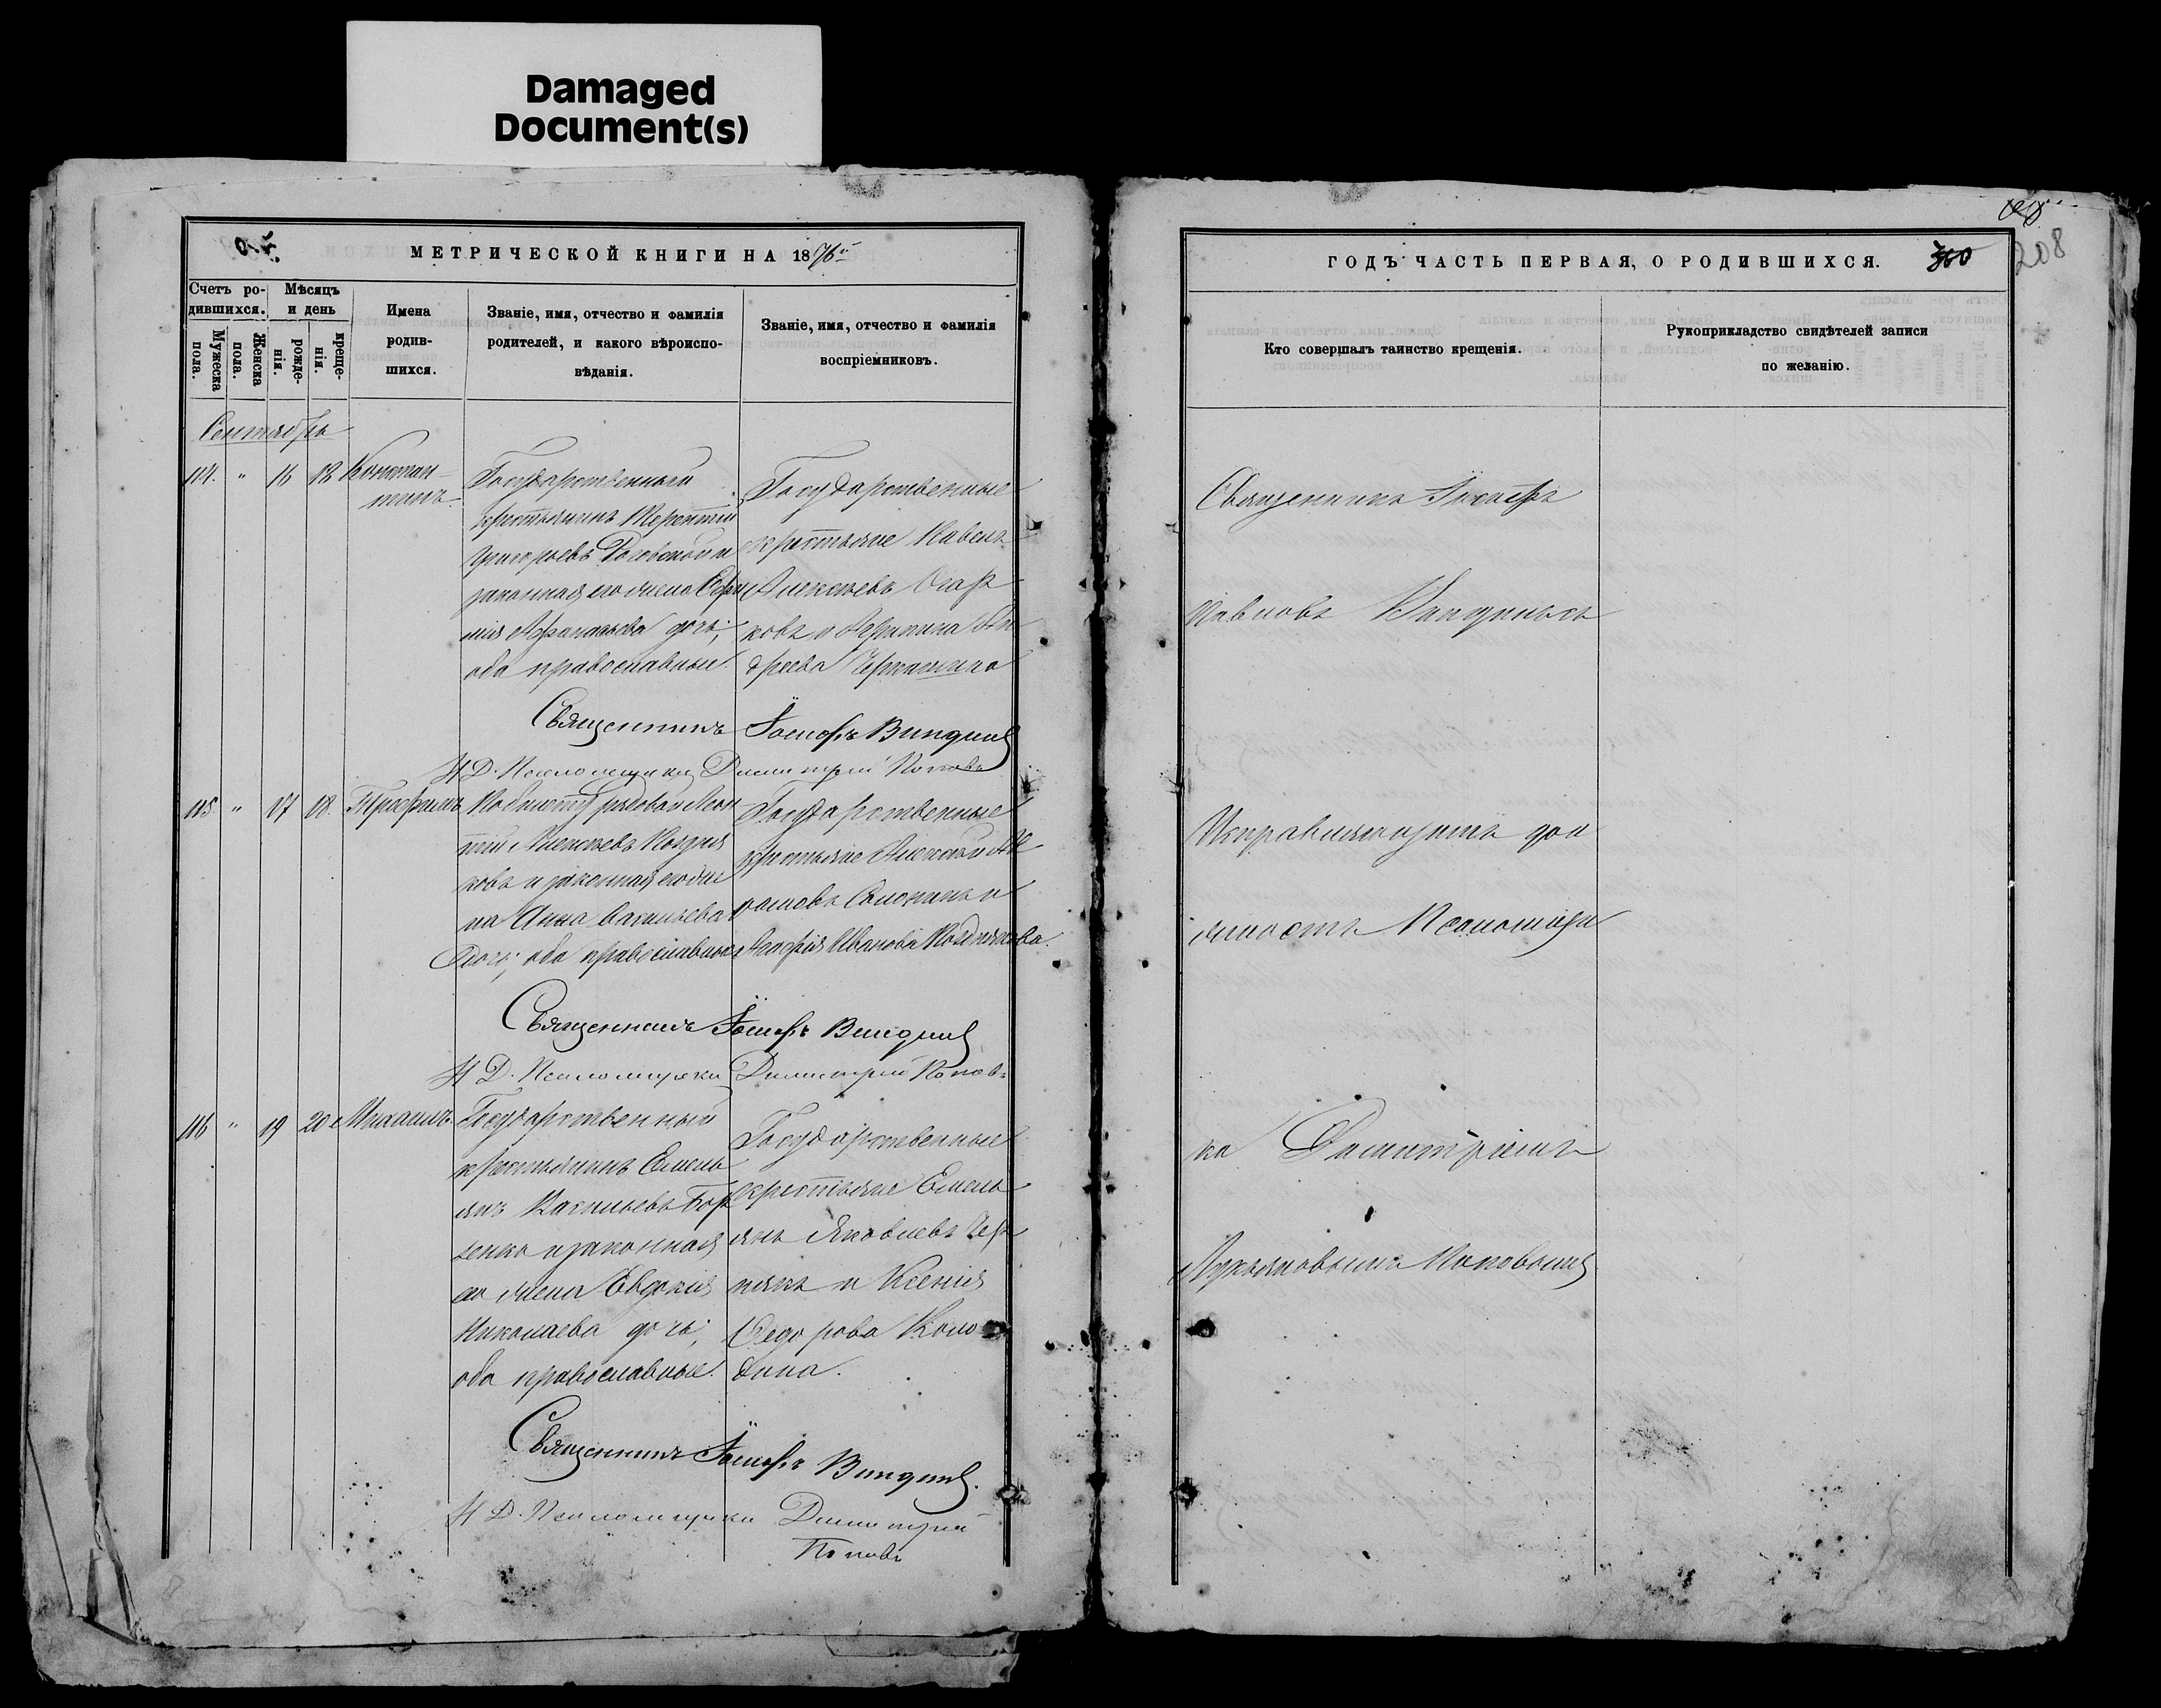 Damaged
Document(s)
МЕТРИЧЕСКОЙ КНИГИ НА 1876й
Счетъ ро-
дившихся.
Мѣсяцъ
и день
Мужеска
пола.
Женска
пола.
рожде-
нія.
креще-
нія.
Имена
родив-
шихся.
Званіе, имя, отчество и фамилія
родителей, и какого вѣроиспо-
вѣданія.
Званіе, имя, отчество и фамилія
воспріемниковъ.
Сентябрь
114. " 16 18 Констан-
тинъ.
Государственный
крестьянинъ Терентій
Григорьевъ и
законная его жена
Афанасьева дочь;
оба православные.
Государственные
крестьяне Павелъ
Алексѣевъ
ковъ и Ан
дреева
Священникъ Іосифъ
И Д. Псаломщика Димитрій Поповъ
115. " 17 18. Трофимъ
рядовой Леон
тій Алексѣевъ Поздня
ковъ и законная его же
на Анна Васильева
дочь; оба православные
Государственные
крестьяне Алексѣй
и
Агафія Иванова Позднякова.
Священникъ Іосифъ
И Д. Псаломщика Димитрій Поповъ
116 " 19 20 Михаилъ
Государственный
крестьянинъ Емель
янъ Васильевъ Бор
и законная
его жена Евдокія
Николаева дочь;
оба православные.
Государственные
крестьяне Емель
янъ Яковлевъ Чер
някъ и Ксенія
Ѳедорова Коло
дина.
Священникъ Іосифъ
И Д. Псаломщика Димитрій
Поповъ
ГОДЪ ЧАСТЬ ПЕРВАЯ, О РОДИВШИХСЯ.
360
208
Кто совершалъ таинство крещенія.
Рукоприкладство свидѣтелей записи
по желанію.
Священникъ Іосифъ
Павловъ
Исправляющимъ дол
жность Псаломщи
ка Димитріемъ
Лукьяновымъ Поповымъ